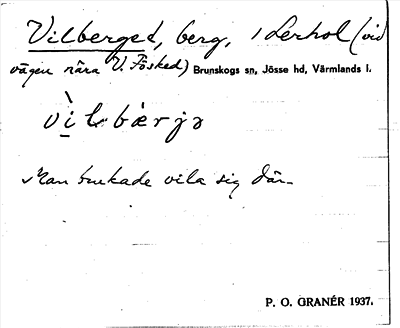 Vilberget, berg, i Lerhol (vid
vägen nära V. Fösked) Brunskogs sn, Jösse hd, Värmlands l.
vìlbærjə
Man brukade vila sig där.
P. O. GRANÉR 1937.